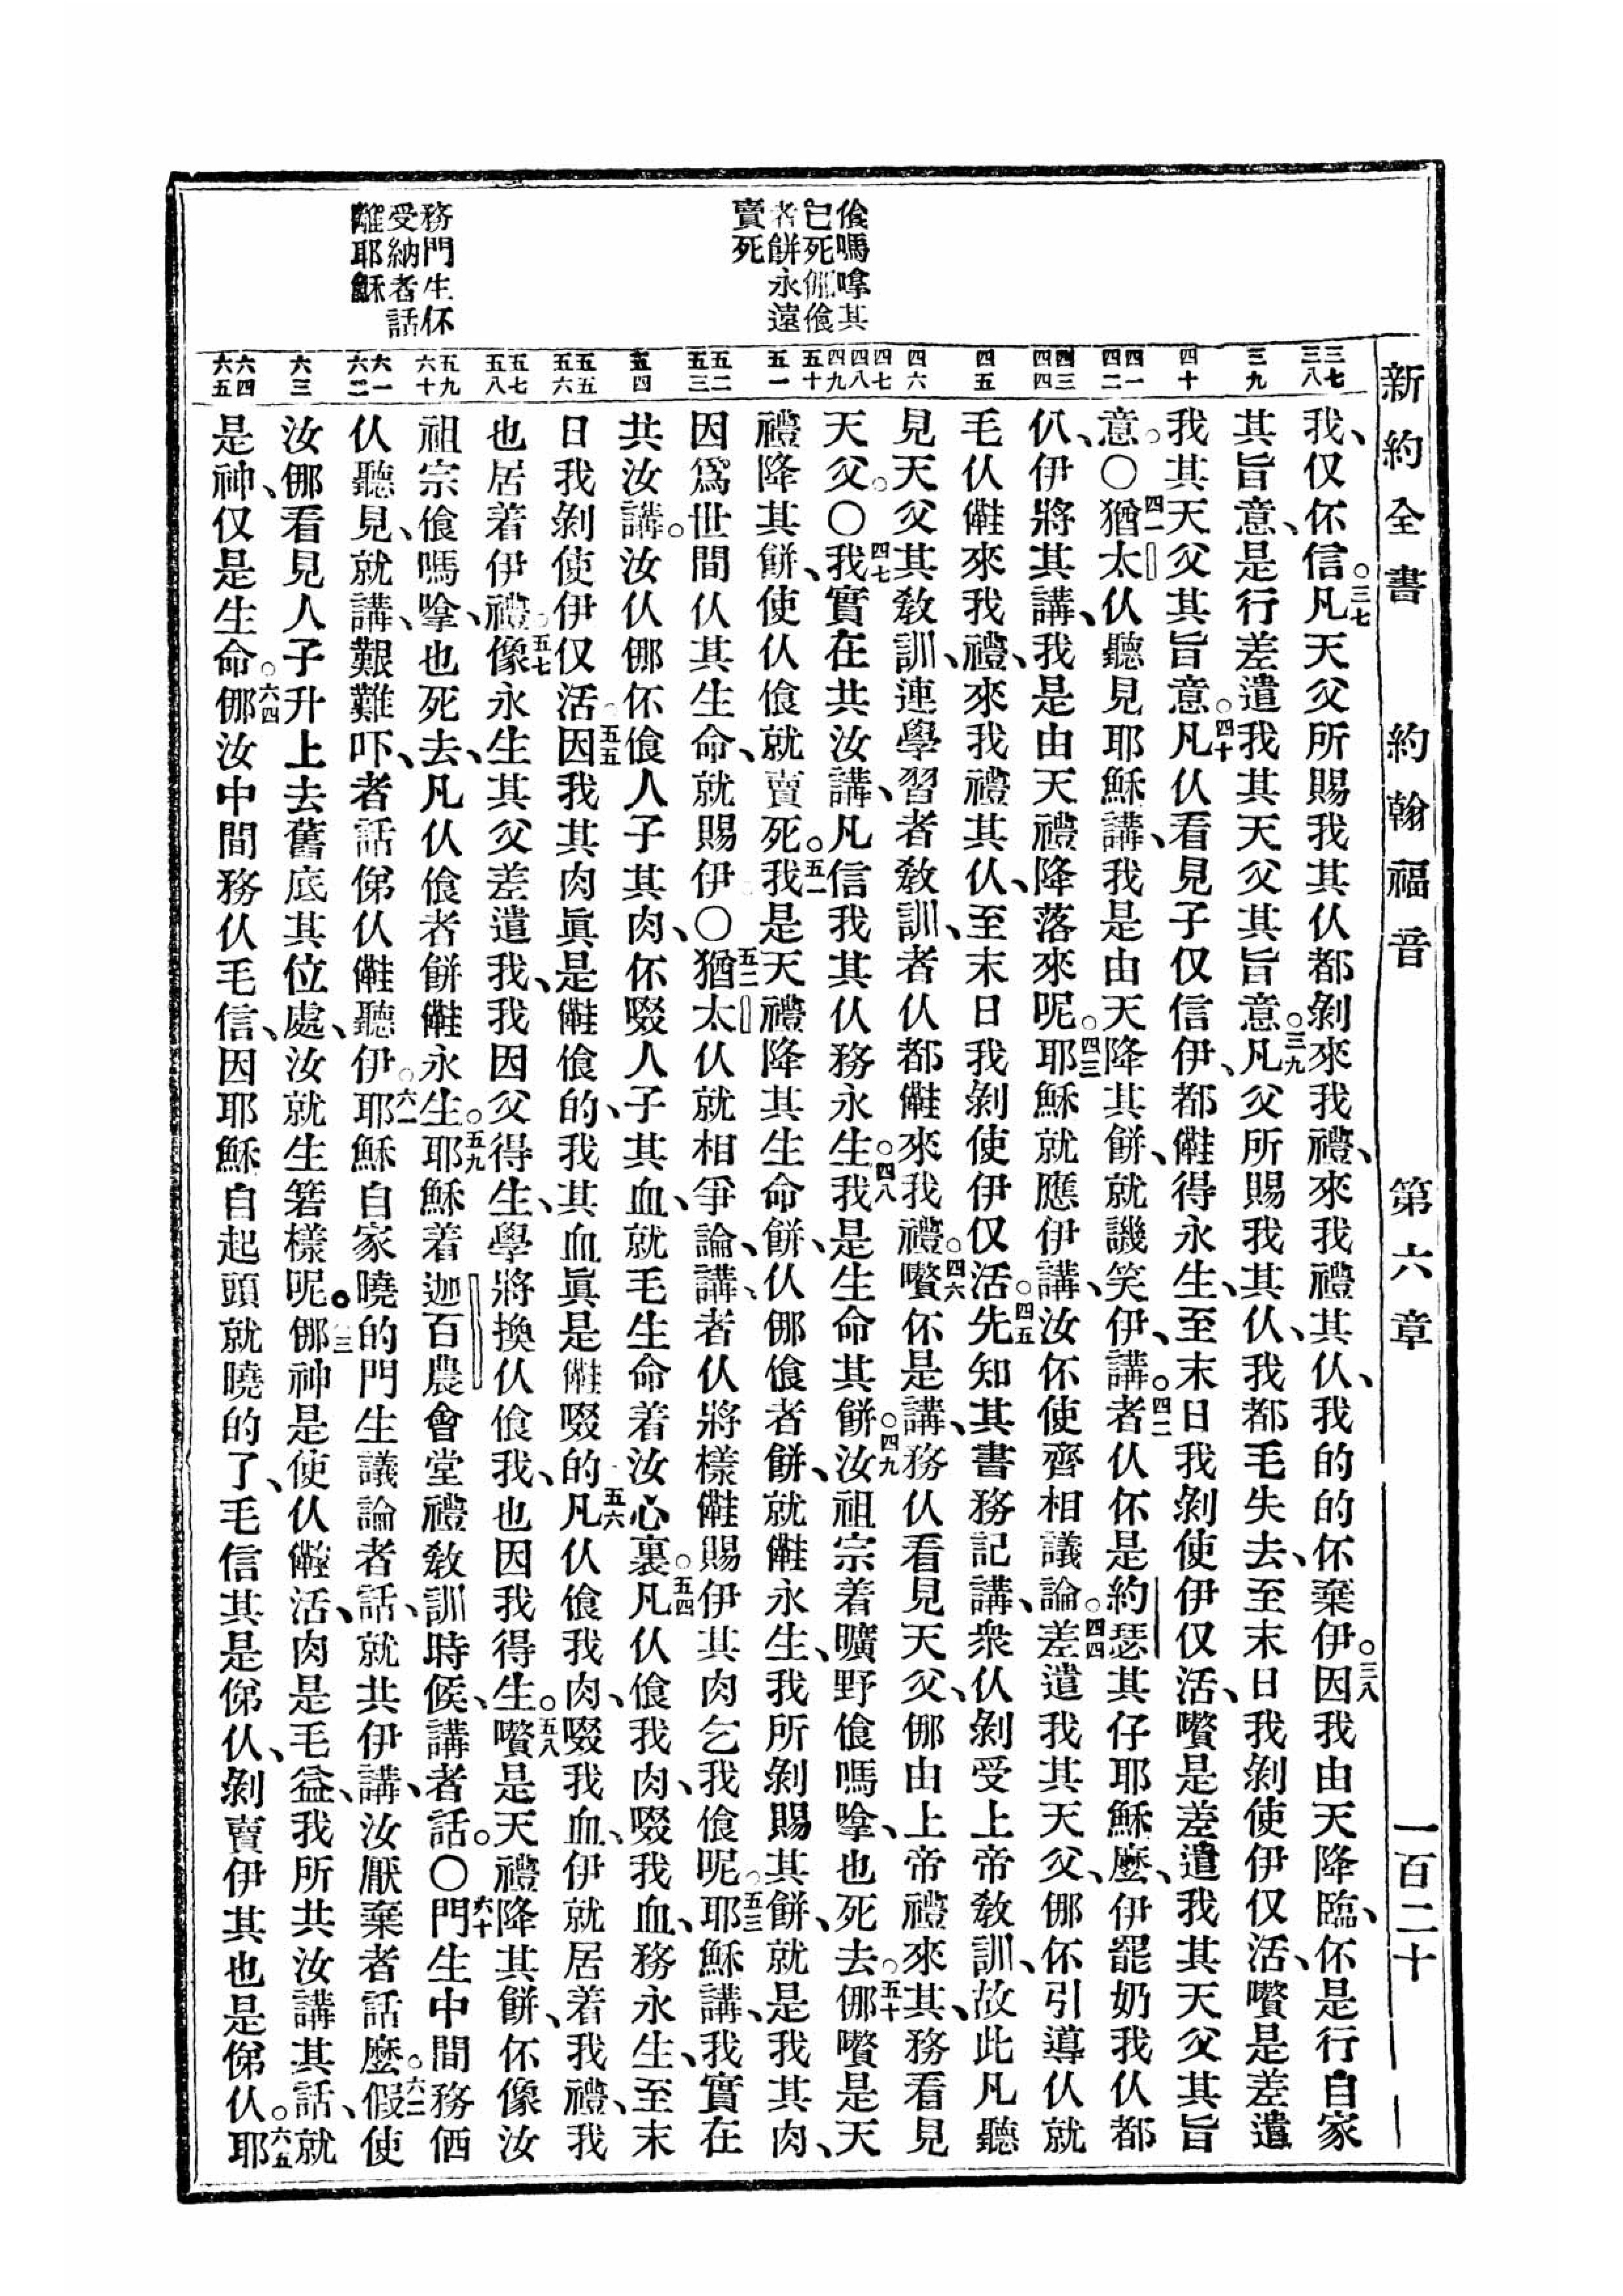 新約全書 約翰福音 第六章 一百二十
偹嗎㗇其
已死偭偹
者餅永遠
賣死
務門生伓
受納者話
離耶穌
三七 三八
三九
四十
四一 四二
四三 四四
四五
四六
四七 四八 四九 五十
五一
五二 五三
五四
五五 五六
五七 五八
五九 六十
六一 六二
六三
六四 六五
我、仅伓信。三七凡天父所賜我其仈都剝來我禮、來我禮其仈、我的的伓棄伊。三八因我由天降臨、伓是行自家
其旨意、是行差遣我其天父其旨意。三九凡父所賜我其仈、我都毛失去、至末日我剝使伊仅活、嚽是差遣
我其天父其旨意。四十凡仈看見子仅信伊、都儺得永生、至末日我剝使伊仅活、嚽是差遣我其天父其旨
意。〇四一猶太仈聽見耶穌講、我是由天降其餅、就譏笑伊、講。四二者仈伓是約瑟其仔耶穌麼、伊罷奶我仈都
仈、伊將其講、我是由天禮降落來呢。四三耶穌就應伊講、汝伓使齊相議論。四四差遣我其天父、㑚伓引導仈就
毛仈儺來我禮、來我禮其仈、至末日我剝使伊仅活。四五先知其書務記講、衆仈剝受上帝敎訓、故此凡聽
見天父其敎訓、連學習者敎訓、者仈都儺來我禮。四六嚽伓是講、務仈看見天父、㑚由上帝禮來其、務看見
天父。〇四七我實在共汝講、凡信我其仈務永生。四八我是生命其餅。四九汝祖宗着曠野偹嗎㗇、也死去。五十㑚嚽是天
禮降其餅、使仈偹就賣死。五一我是天禮降其生命餅、仈㑚偹者餅、就儺永生、我所剝賜其餅、就是我其肉、
因爲世間仈其生命、就賜伊〇五二猶太仈就相爭論、講、者仈將樣儺賜伊其肉乞我偹呢。五三耶穌講、我實在
共汝講。汝仈㑚伓偹人子其肉、伓啜人子其血、就毛生命着汝心裏。五四凡仈偹我肉、啜我血、務永生、至末
日我剝使伊仅活。五五因我其肉眞是儺偹的、我其血眞是儺啜的。五六凡仈偹我肉、啜我血、伊就居着我禮、我
也居着伊禮。五七像永生其父差遣我、我因父得生、學將換仈偹我、也因我得生。五八嚽是天禮降其餅、伓像汝
祖宗偹嗎㗇、也死去、凡仈偹者餅儺永生。五九耶穌着迦百農會堂禮敎訓時候、講者話。〇六十門生中間務価
仈聽見、就講、艱難吓、者話俤仈儺聽伊。六一耶穌自家曉的門生議論者話、就共伊講、汝厭棄者話麼。六二假使
汝㑚看見人子升上去舊底其位處、汝就生箬樣呢。六三㑚神是使仈儺活、肉是毛益、我所共汝講其話、就
是神、仅是生命。六四㑚汝中間務仈毛信、因耶穌自起頭就曉的了、毛信其是俤仈、剝賣伊其也是俤仈。六五耶